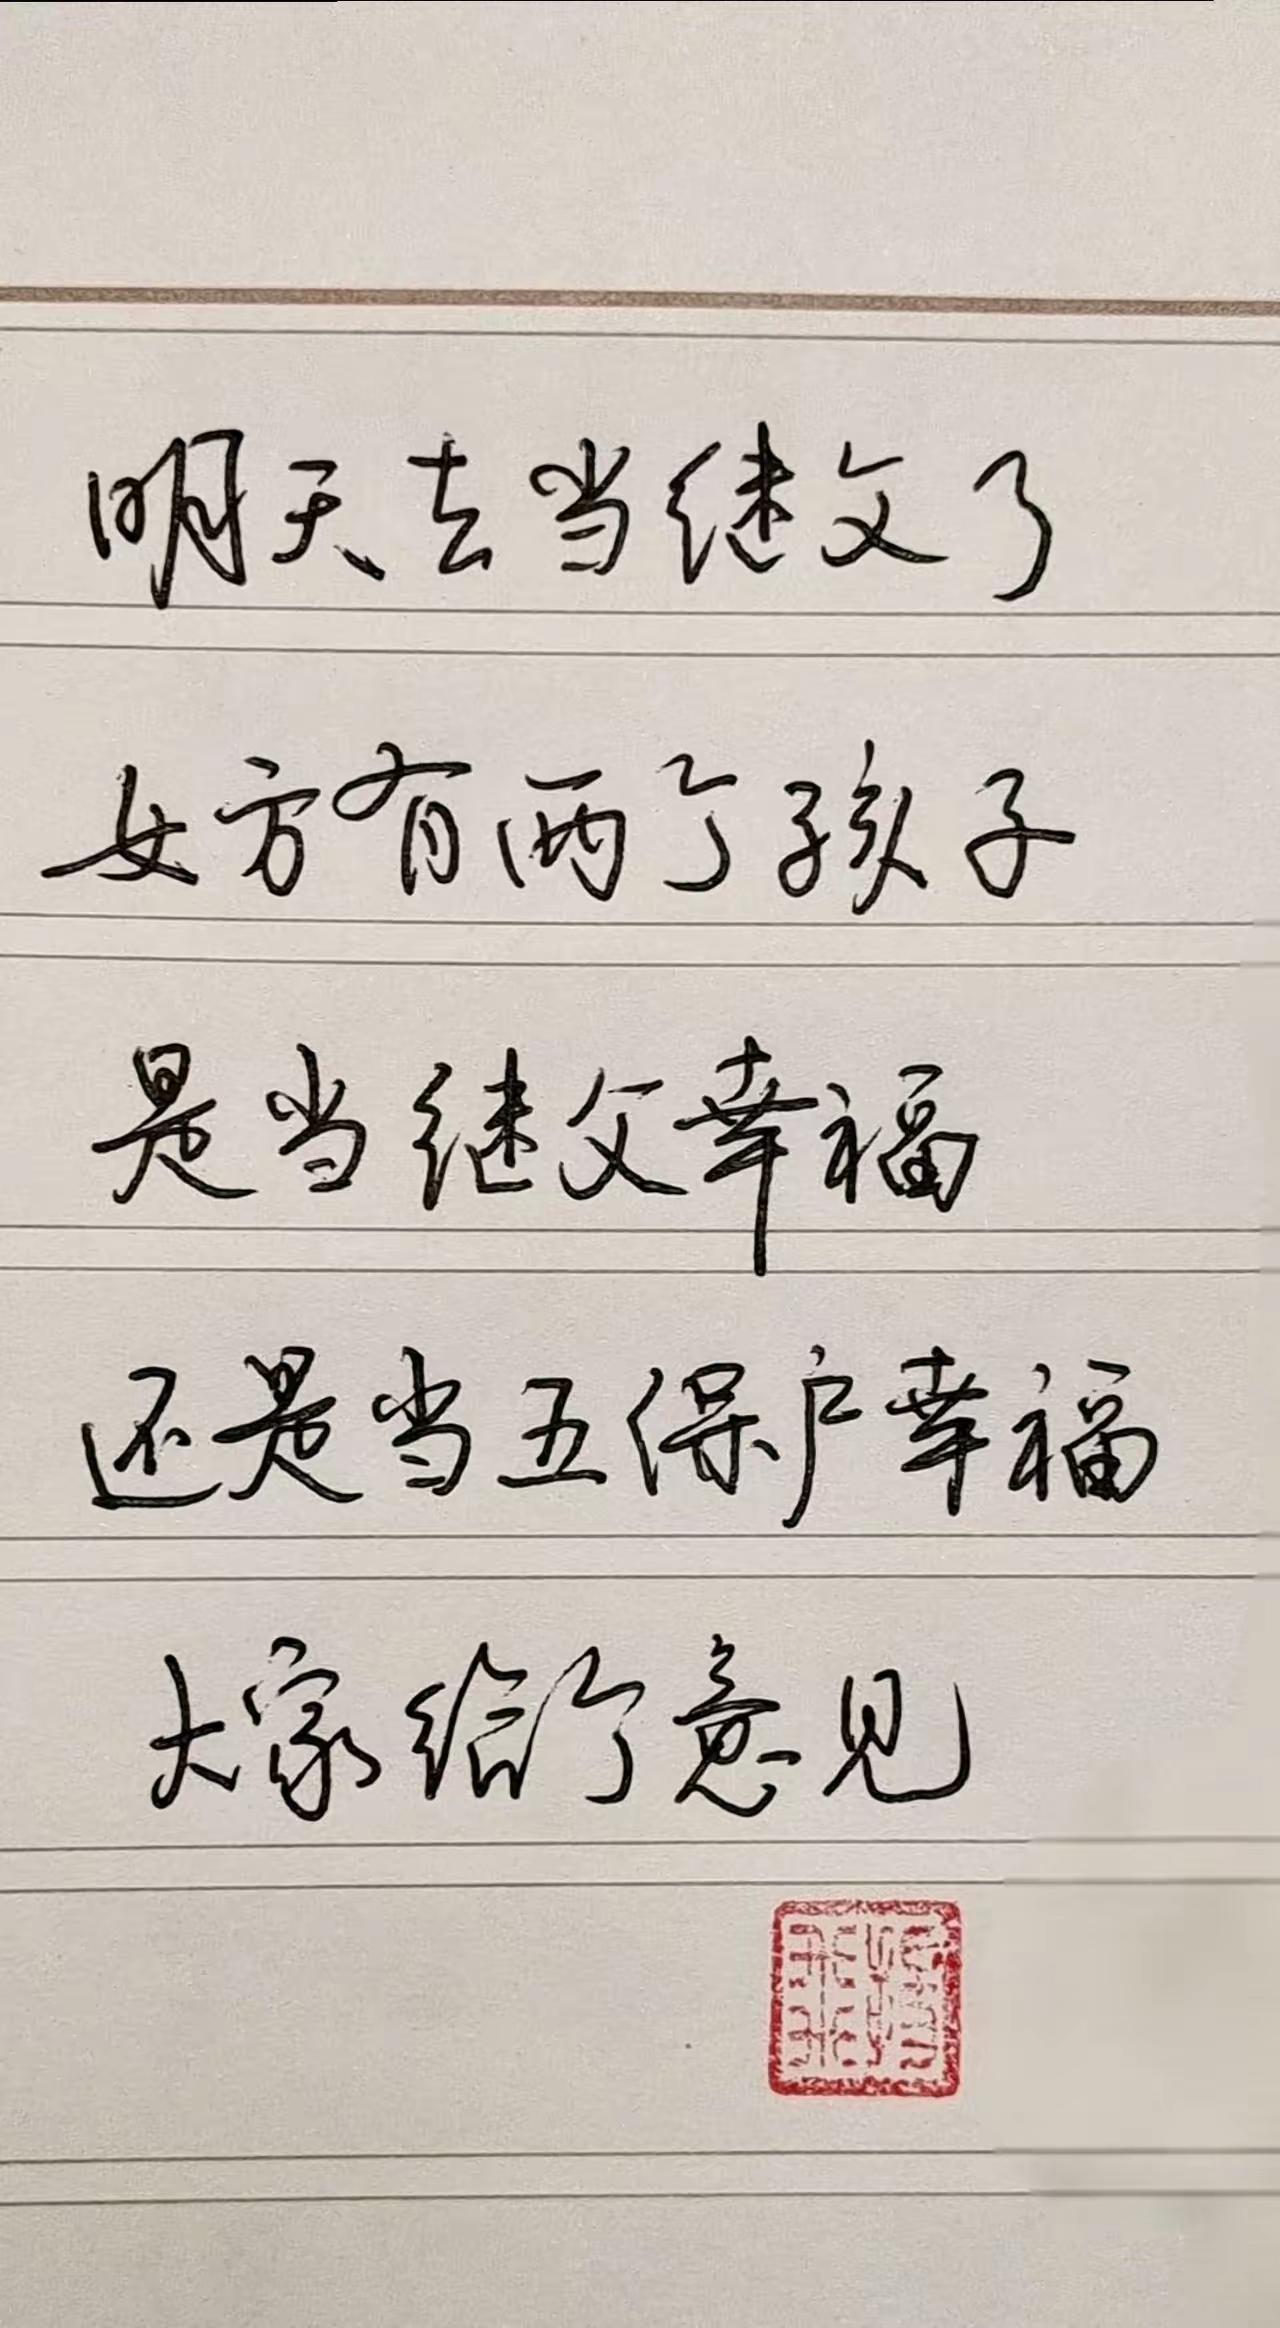 明天去当继父了
女方有两个孩子
是当继父幸福
还是当五保户幸福
大家给个意见